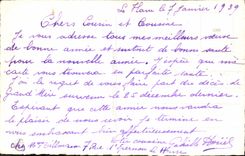 Le Plan le 7 Janvier 1939
Chers Cousin et Cousine
Je vous adresse tous mes meilleurs vœux
de bonne année et surtout de bonne santé
pour la nouvelle année. J'espère que ma
carte vous trouvera en parfaite santé.
J'ai le regret de vous faire part du décès de
Grand Mère survenu le 8 décembre dernier.
Espérant que cette année nous vaudra
le plaisir de nous revoir je termine en
vous embrassant bien affectueusement
votre cousine
chez Mr 7 Rue